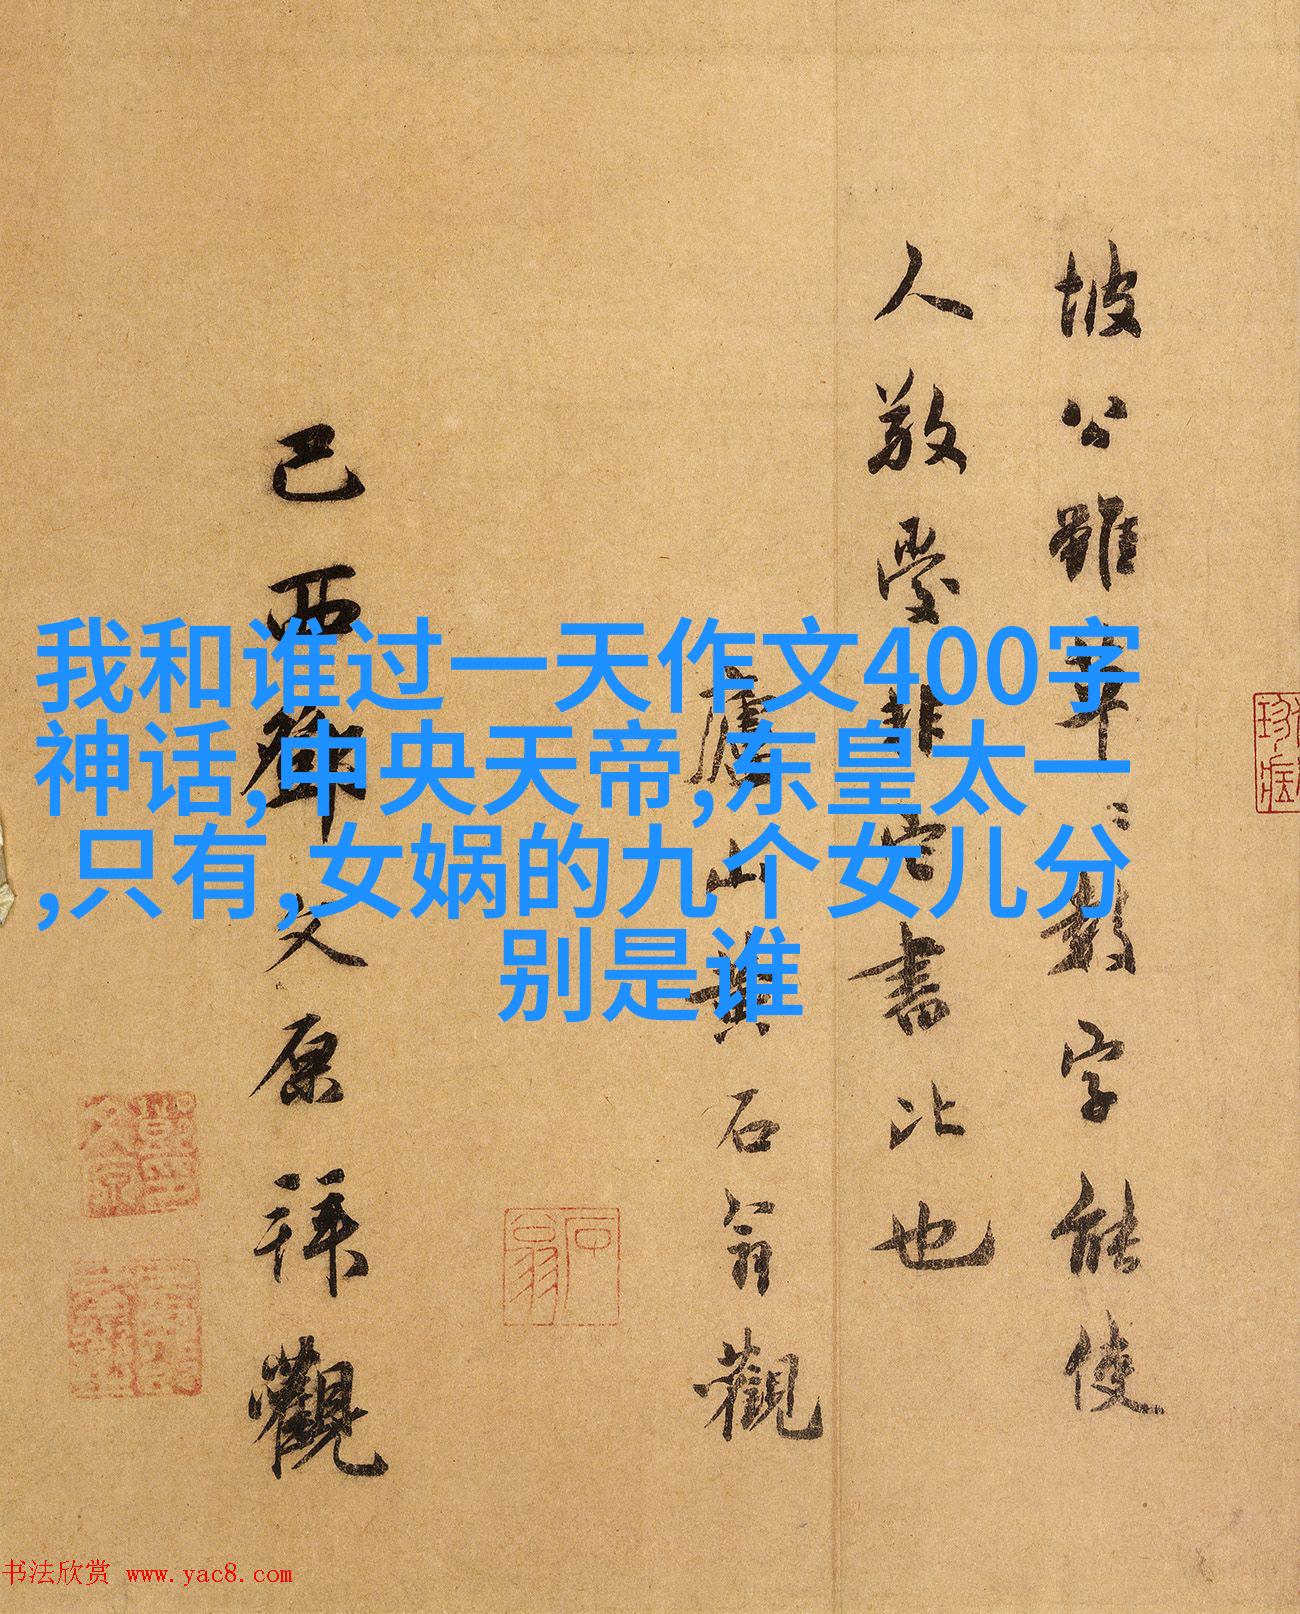 我和谁过一天作文400字
神话,中央天帝,东皇太一
,只有,女娲的九个女儿分
别是谁
坡公雖平〻数字能使
人敬愛非它書比也
廬山黄石翁觀
己酉鄧文原拜觀
石翁
书法欣赏 www.yac8.com